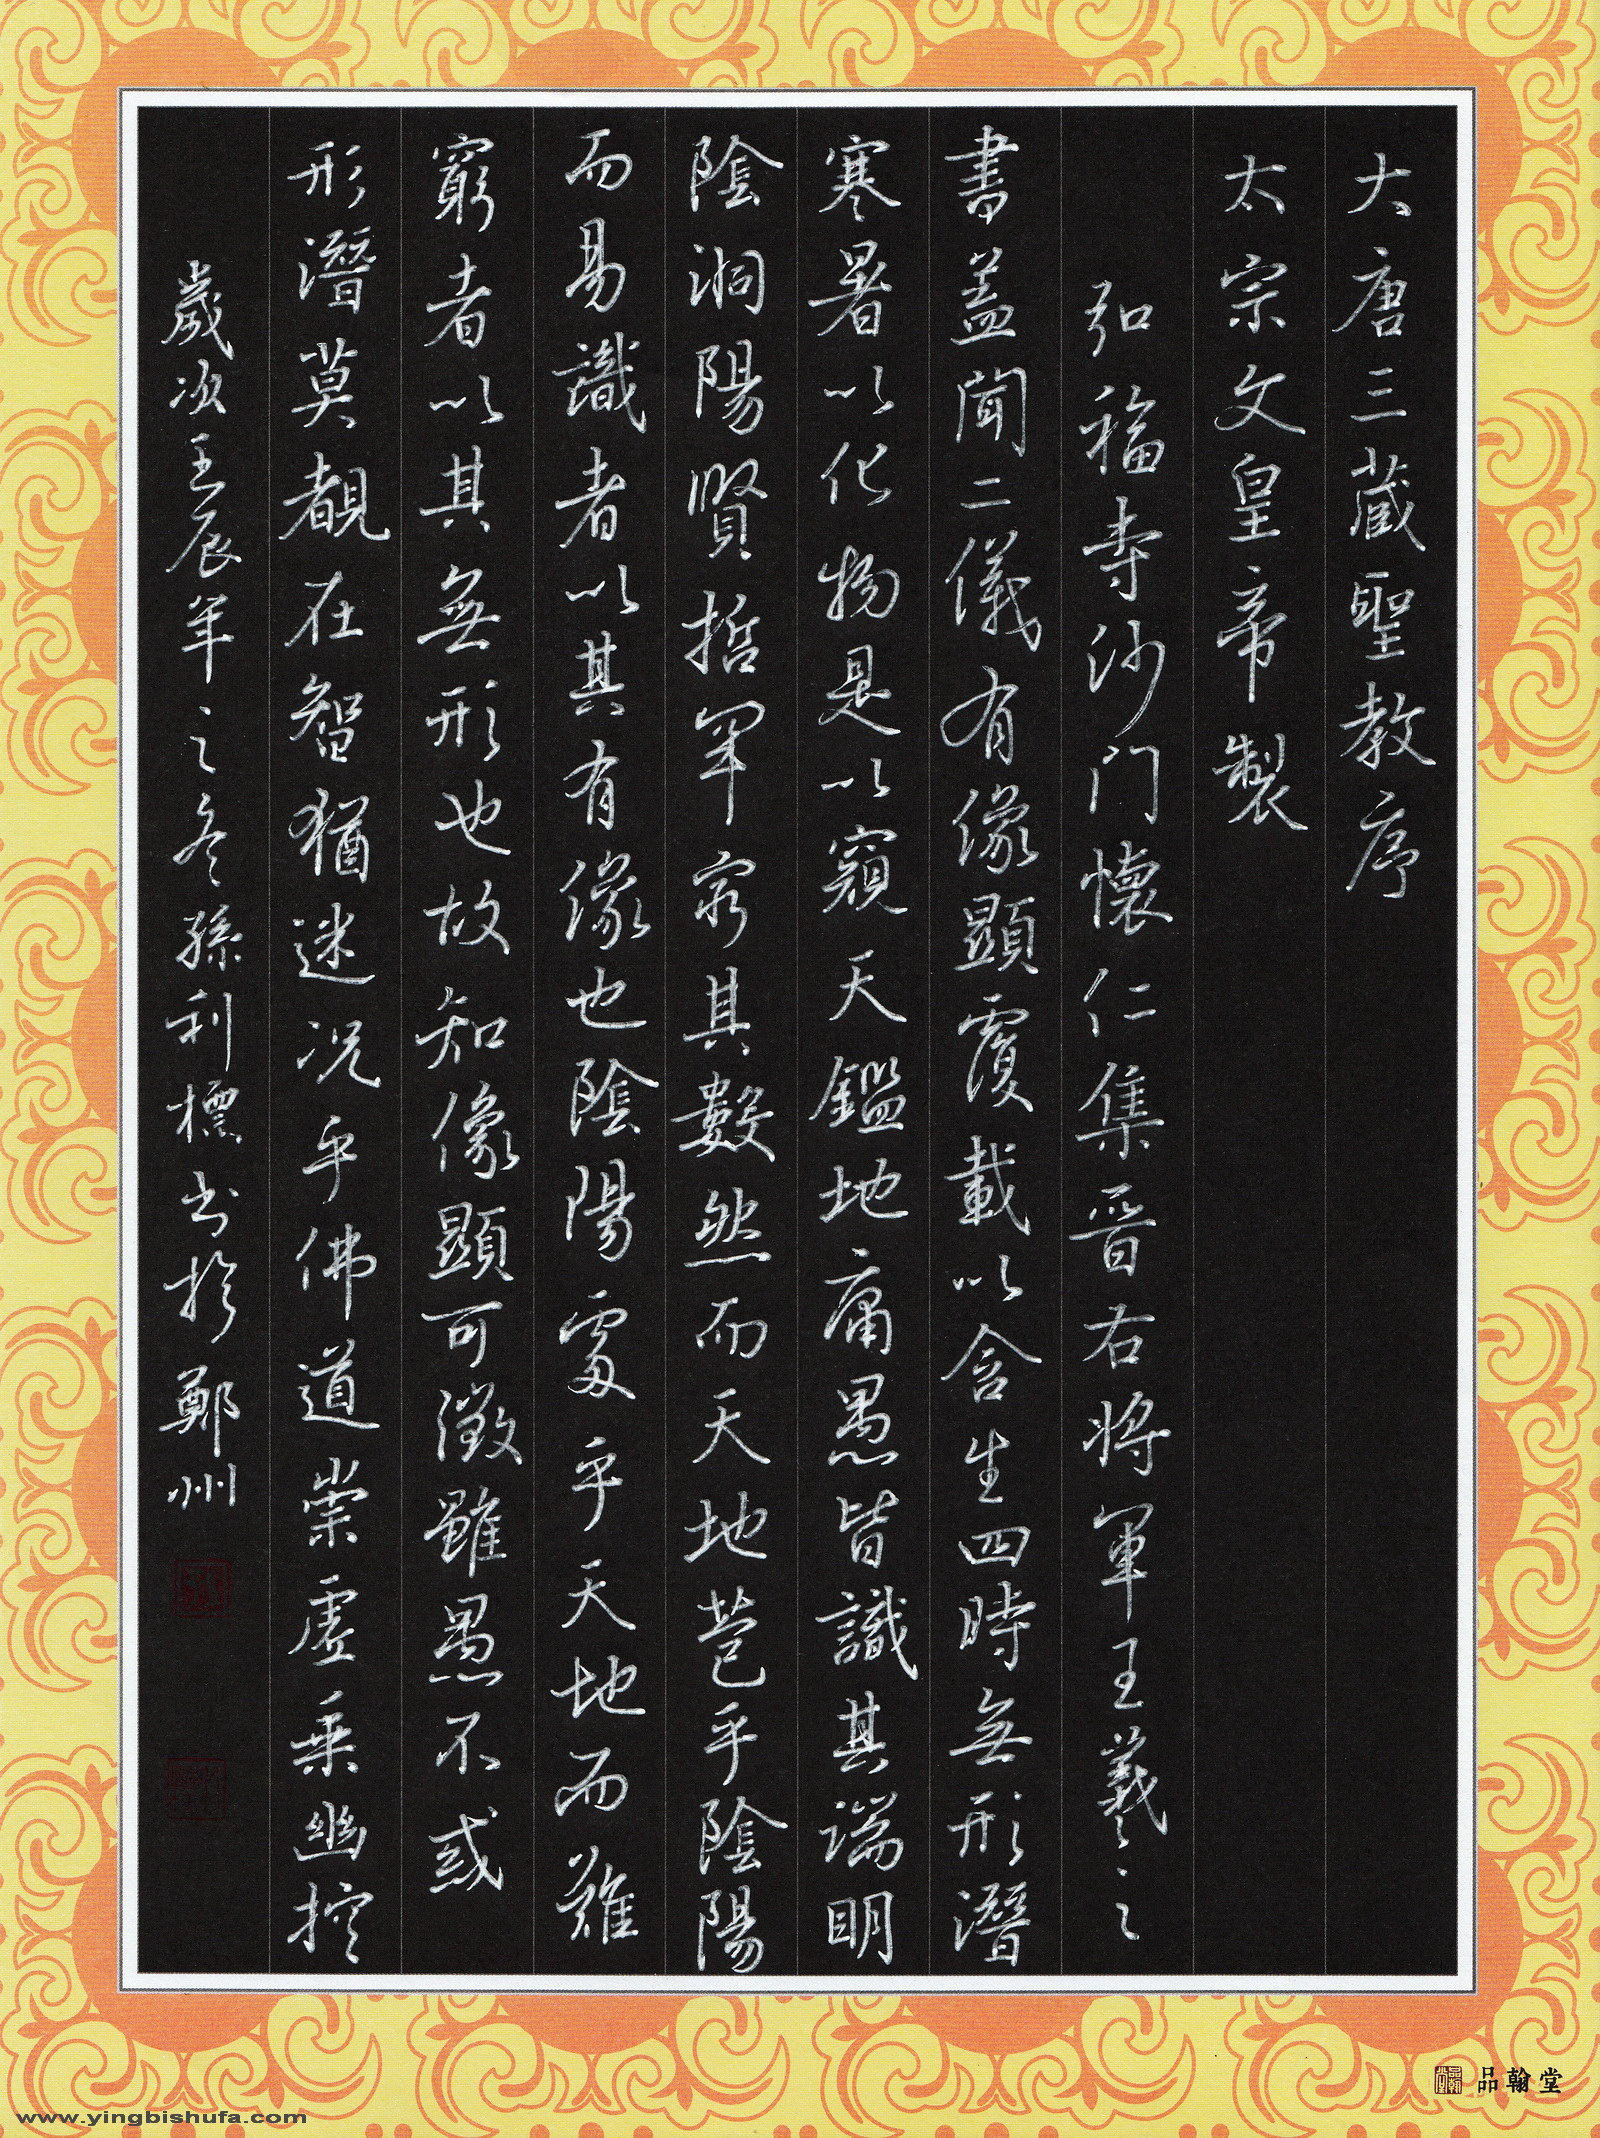 大唐三藏聖教序
太宗文皇帝製
弘福寺沙門懷仁集晉右將軍王羲之
書蓋聞二儀有像顯覆載以含生四時無形潛
寒暑以化物是以窺天鑑地庸愚皆識其端明
陰洞陽賢哲罕窮其數然而天地苞乎陰陽
而易識者以其有像也陰陽處乎天地而難
窮者以其無形也故知像顯可徵雖愚不惑
形潛莫覩在智猶迷況乎佛道崇虛乘幽控
歲次壬辰年之冬孫利標书於鄭州
品翰堂
www.yingbishufa.com